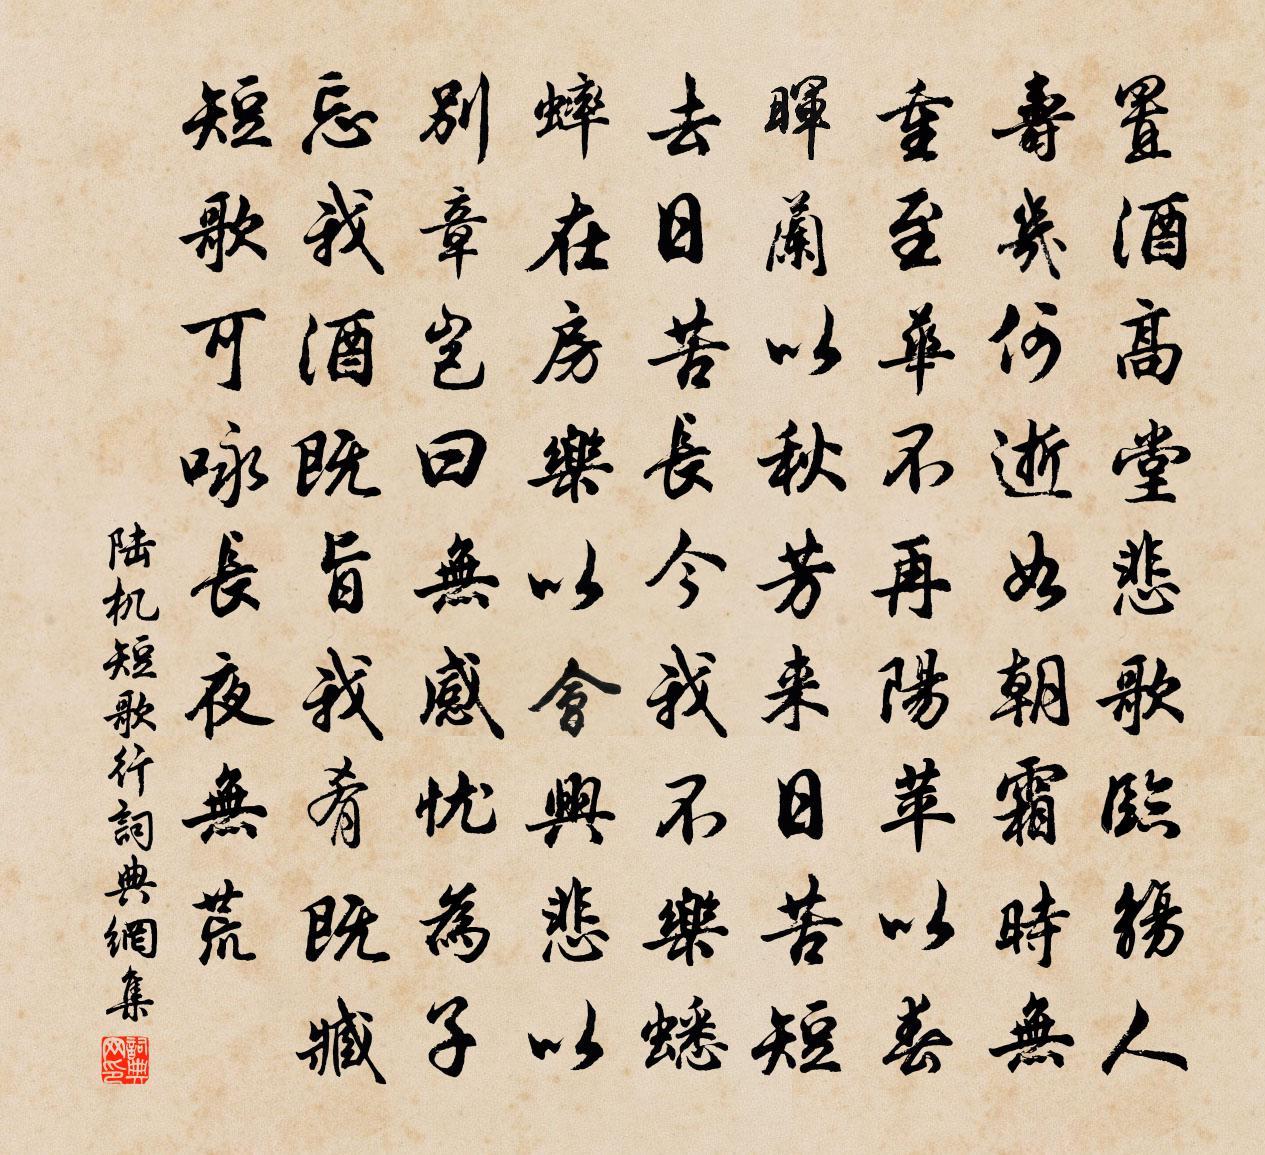 置酒高堂悲歌臨觴人
壽幾何逝如朝霜時無
重至華不再陽苹以春
暉蘭以秋芳来日苦短
去日苦長今我不樂蟋
蟀在房樂以會興悲以
别章豈曰無感忧為子
忘我酒既旨我肴既臧
短歌可咏長夜無荒
陆机短歌行詞典網集
詞典网印